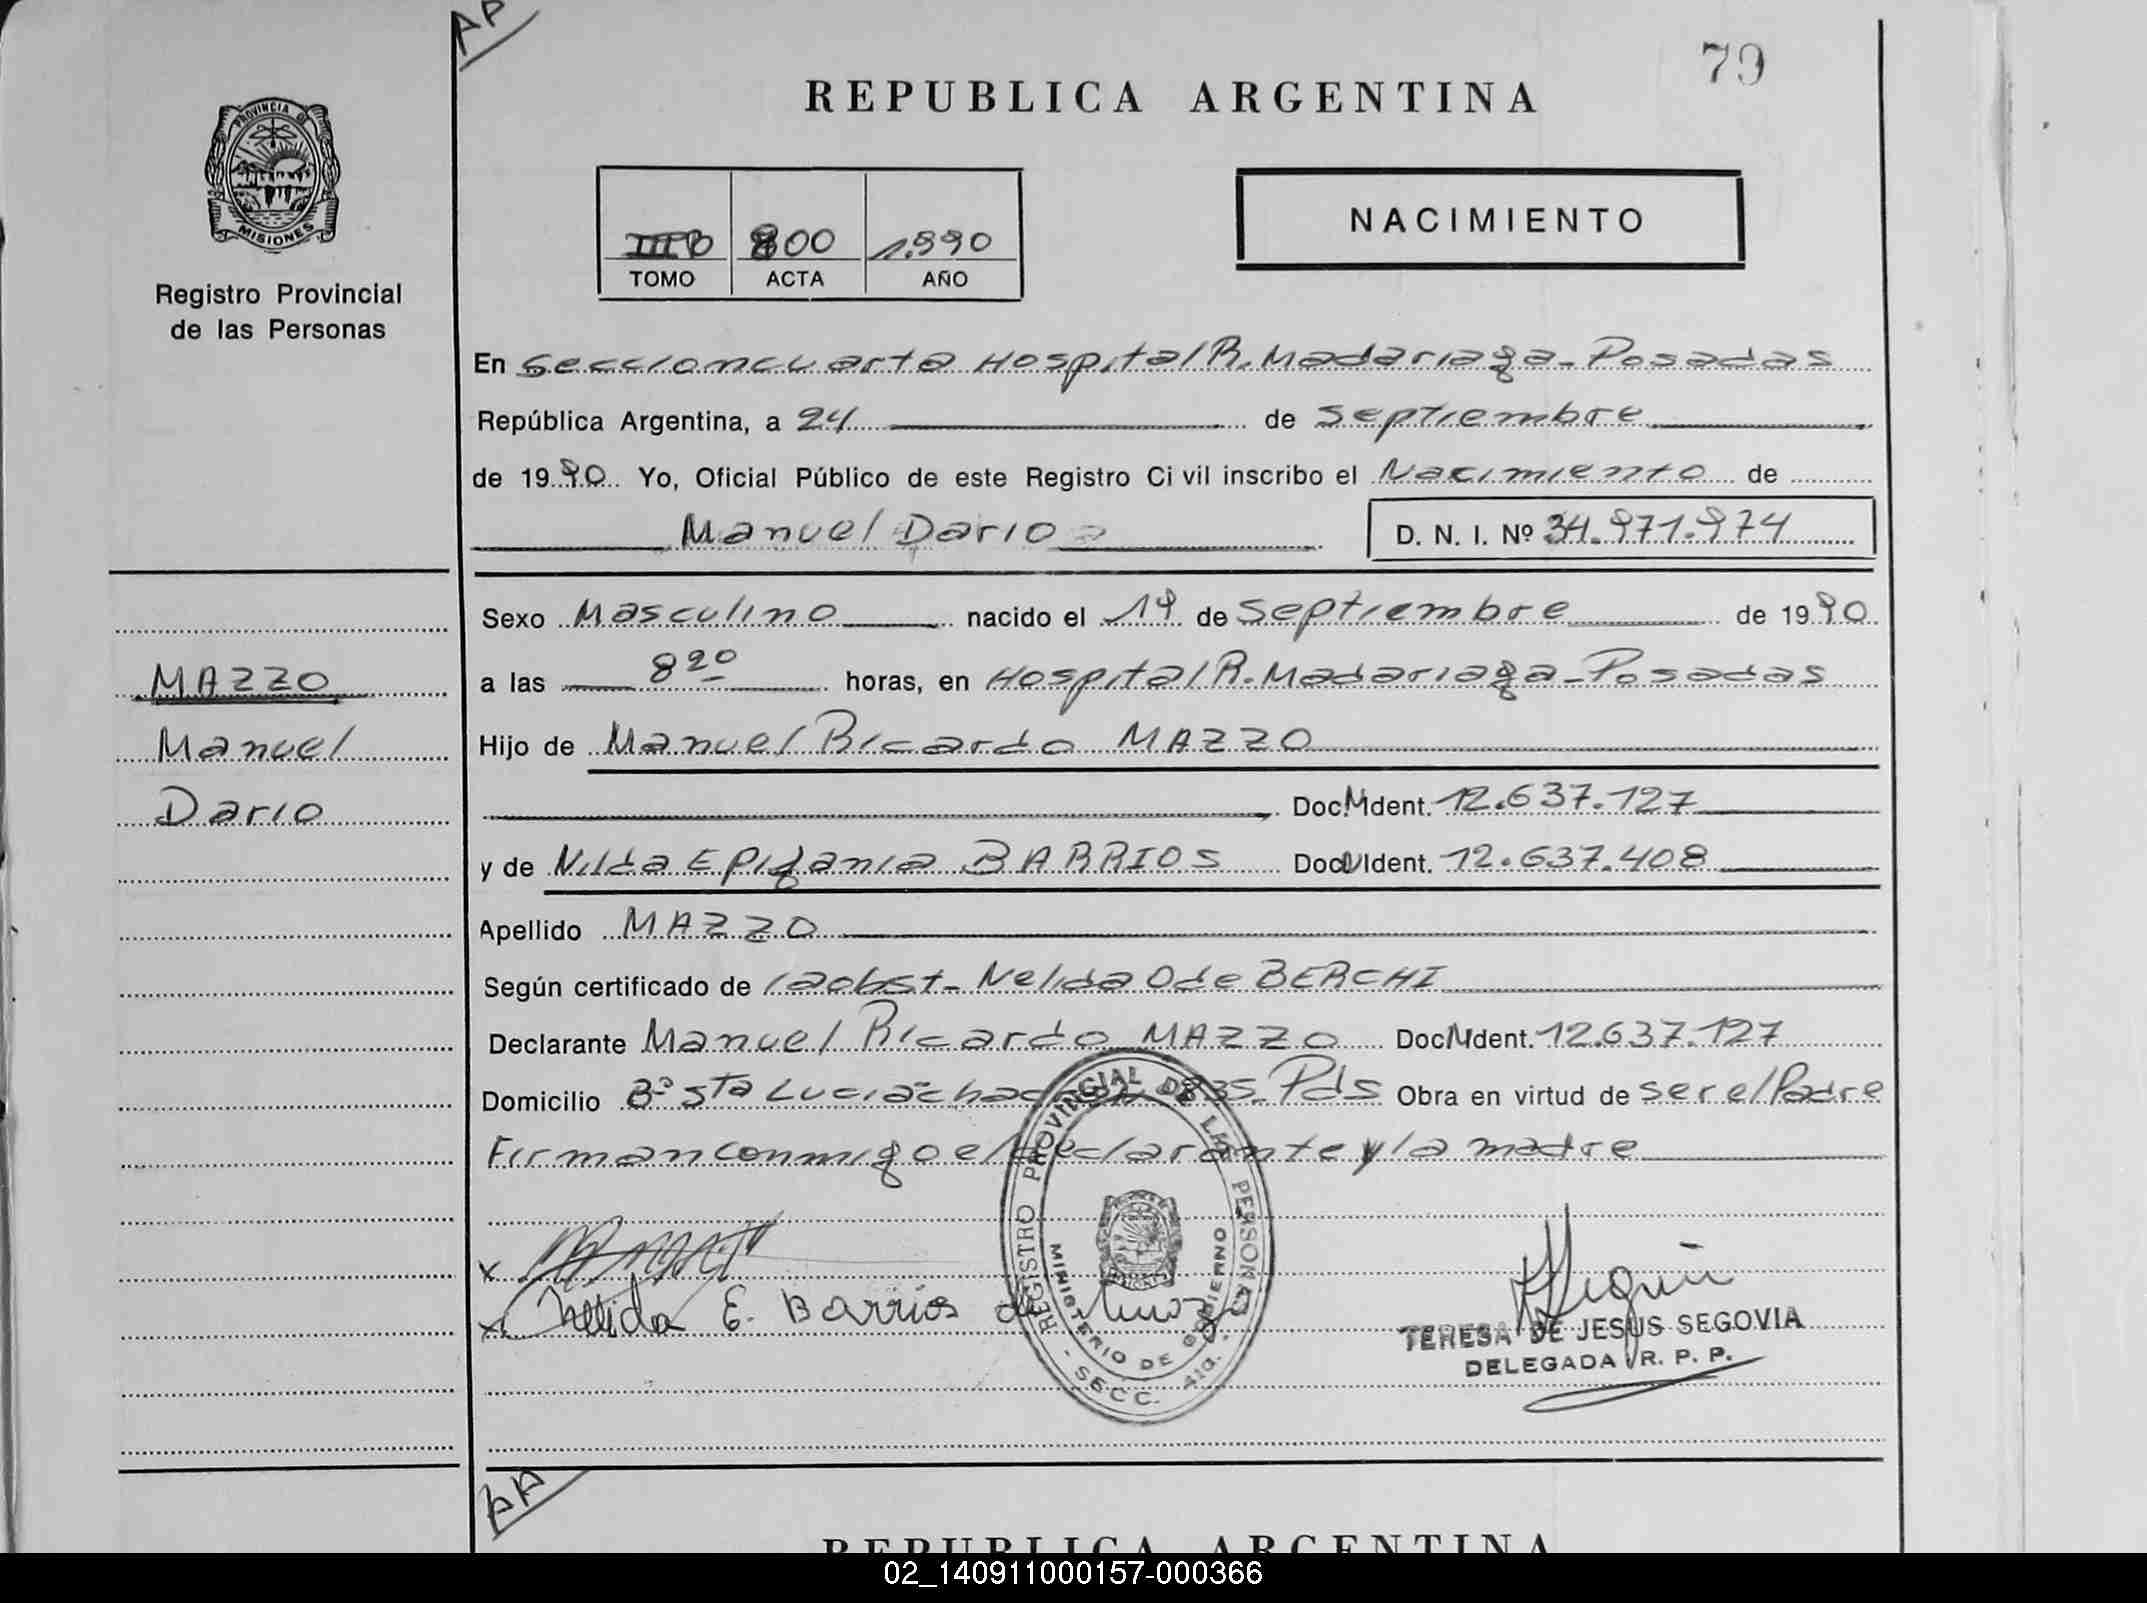 AP
79
REPUBLICA ARGENTINA
PROVINCIA DE
MISIONES
Registro Provincial
de las Personas
800 1.990
TOMO ACTA AÑO
NACIMIENTO
En Seccion cuarta Hospital R. Madariaga - Posadas
República Argentina, a 24 de Septiembre
de 1990 Yo, Oficial Público de este Registro Civil inscribo el Nacimiento de
Manuel Dario
D. N. I. Nº 34.971.974
Sexo Masculino nacido el 19 de Septiembre de 1990
MAZZO
Manuel
Dario
a las 8 20 horas, en Hospital R. Madariaga - Posadas
Hijo de Manuel Ricardo MAZZO
Doc. Ident. 12.637.127
y de Nilda Epifania BARRIOS Doc. Ident. 12.637.408
Apellido MAZZO
Según certificado de la obst - Nelida O de BERCHI
Declarante Manuel Ricardo MAZZO Doc. Ident. 12.637.127
Domicilio Bº Sta Lucia 835 - Pds Obra en virtud de ser el Padre
Firman conmigo el declarante y la madre
REGISTRO PROVINCIAL DE LAS PERSONAS
MINISTERIO DE GOBIERNO
- SECC. 4ta. -
x
x Nelida E. Barrios de
TERESA DE JESUS SEGOVIA
DELEGADA R. P. P.
REPUBLICA ARGENTINA
02_140911000157-000366